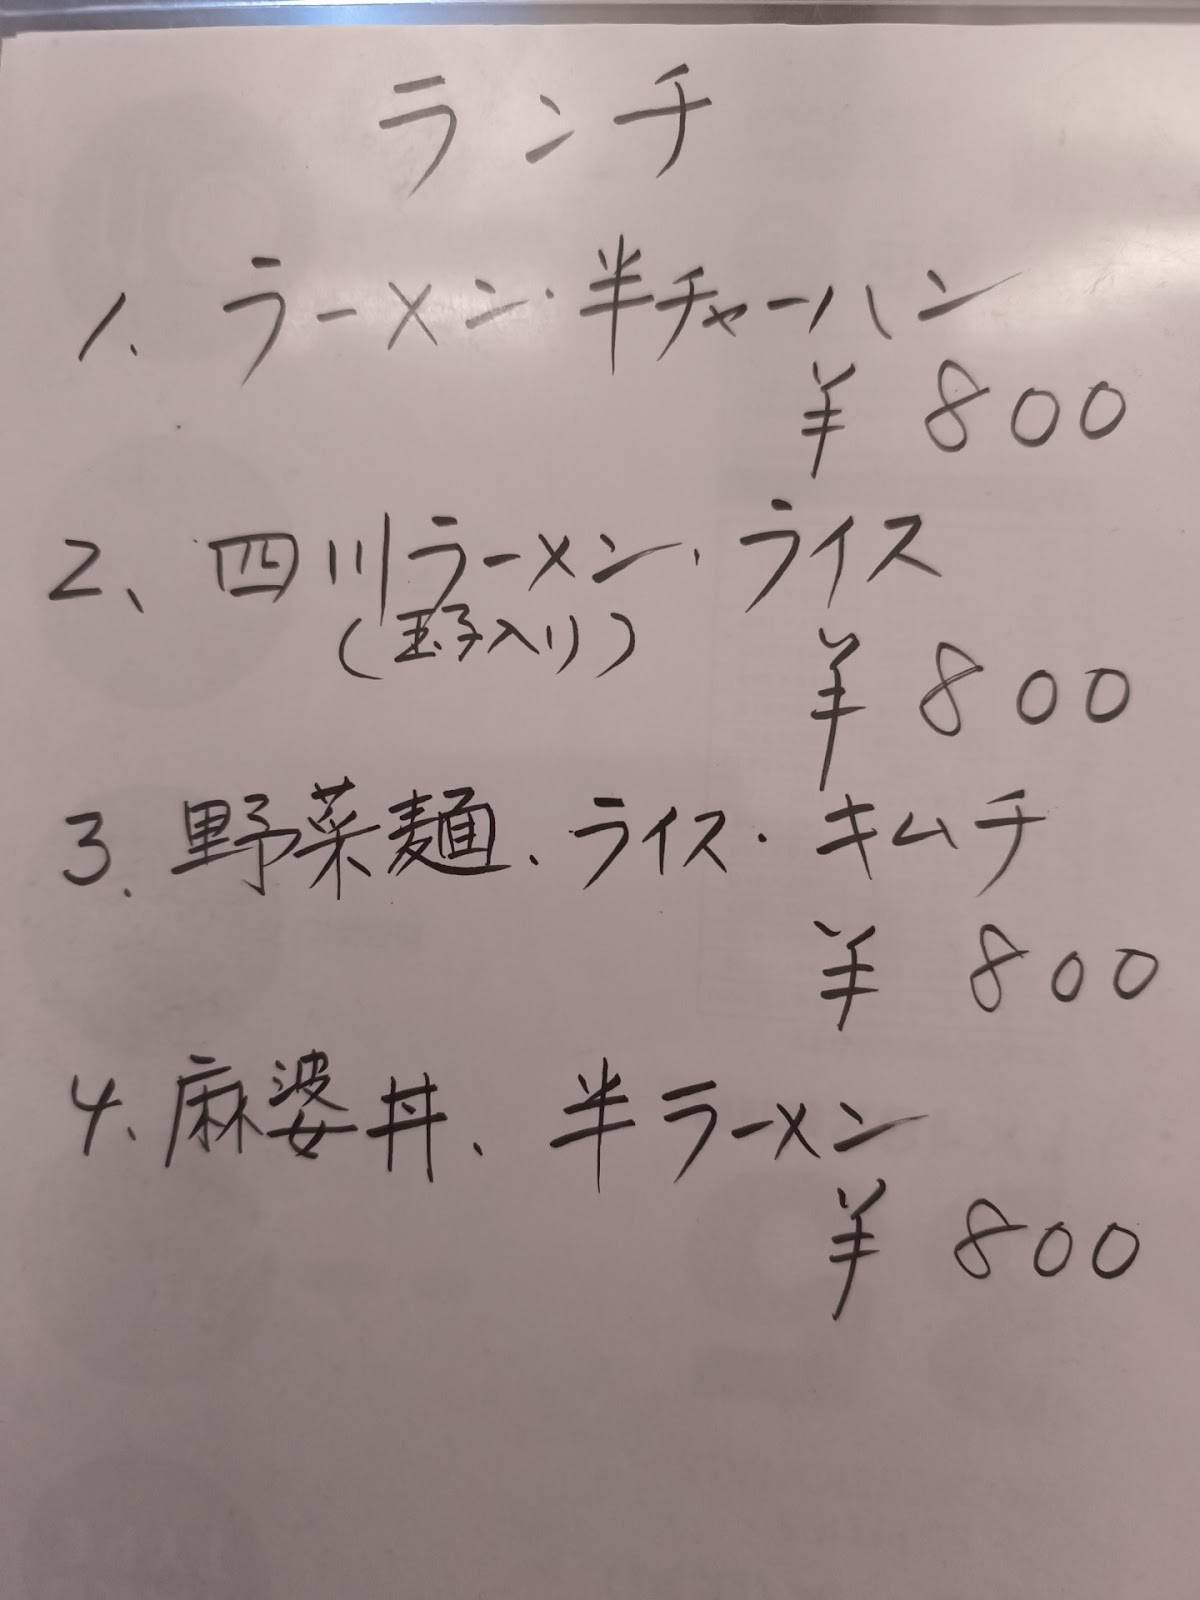 ランチ
1. ラーメン・半チャーハン
¥800
2、四川ラーメン、ライス
(玉子入り)
¥800
3. 野菜麺、ライス・キムチ
¥800
4. 麻婆丼、半ラーメン
¥800